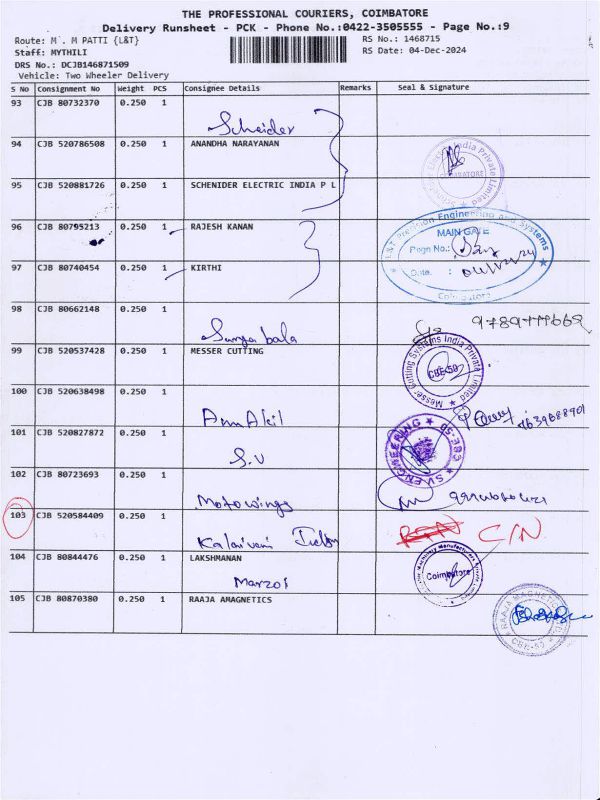 THE PROFESSIONAL COURIERS, COIMBATORE
Delivery Runsheet - PCK - Phone No.:0422-3505555 - Page No.:9
Route: M . M PATTI {L&T}
RS No.: 1468715
Staff: MYTHILI
RS Date: 04-Dec-2024
DRS No.: DCJB146871509
Vehicle: Two Wheeler Delivery
S No Consignment No Weight PCS Consignee Details Remarks Seal & Signature
93 CJB 80732370 0.250 1
Scheider
94 CJB 520786508 0.250 1 ANANDHA NARAYANAN
India Private Limited
COIMBATORE
95 CJB 520881726 0.250 1 SCHENIDER ELECTRIC INDIA P L
96 CJB 80795213 0.250 1 RAJESH KANAN
L&T Precision Engineering and Systems
MAIN GATE
Page No.:
Date :
Coimbatore
97 CJB 80740454 0.250 1 KIRTHI
98 CJB 80662148 0.250 1
Surya bala
99 CJB 520537428 0.250 1 MESSER CUTTING
Messer Cutting Systems India Private Limited
CBE-50
100 CJB 520638498 0.250 1
101 CJB 520827872 0.250 1
S.V
SV ENGINEERING
102 CJB 80723693 0.250 1
Motowings
103 CJB 520584409 0.250 1
C/N
Kalaivani
104 CJB 80844476 0.250 1 LAKSHMANAN
Coimbatore
105 CJB 80870380 0.250 1 RAAJA AMAGNETICS